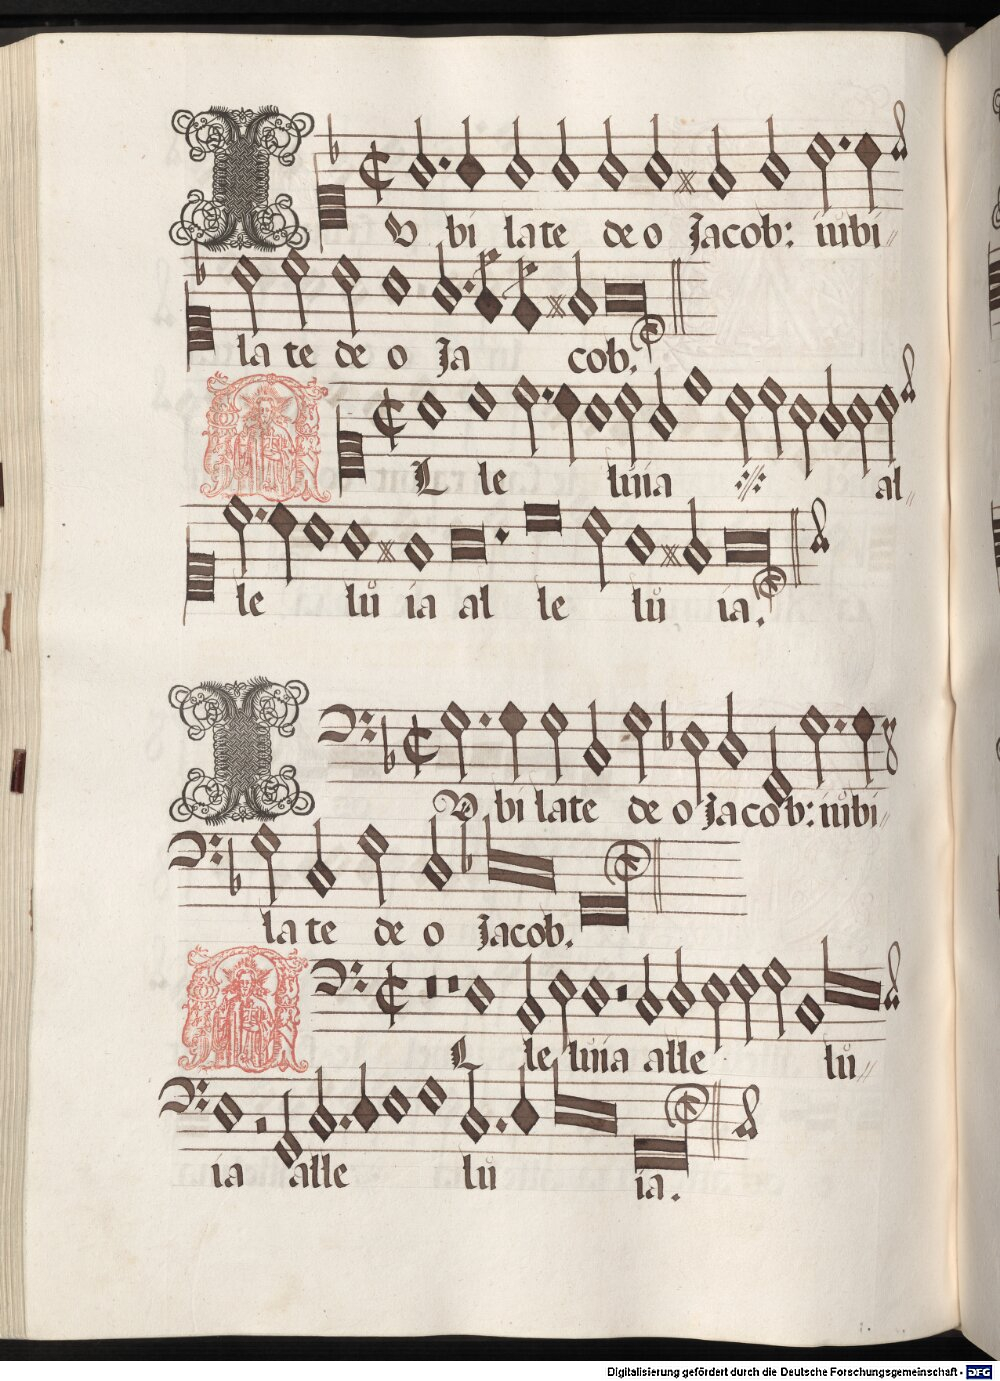 IV bi late deo Jacob: iubi
la te de o Ja cob.
AL le luia al
le lu ia al le lu ia.
IV bi late deo Jacob: iubi
la te de o Jacob.
AL le luia alle lu
ia alle lu ia.
Digitalisierung gefördert durch die Deutsche Forschungsgemeinschaft - DFG